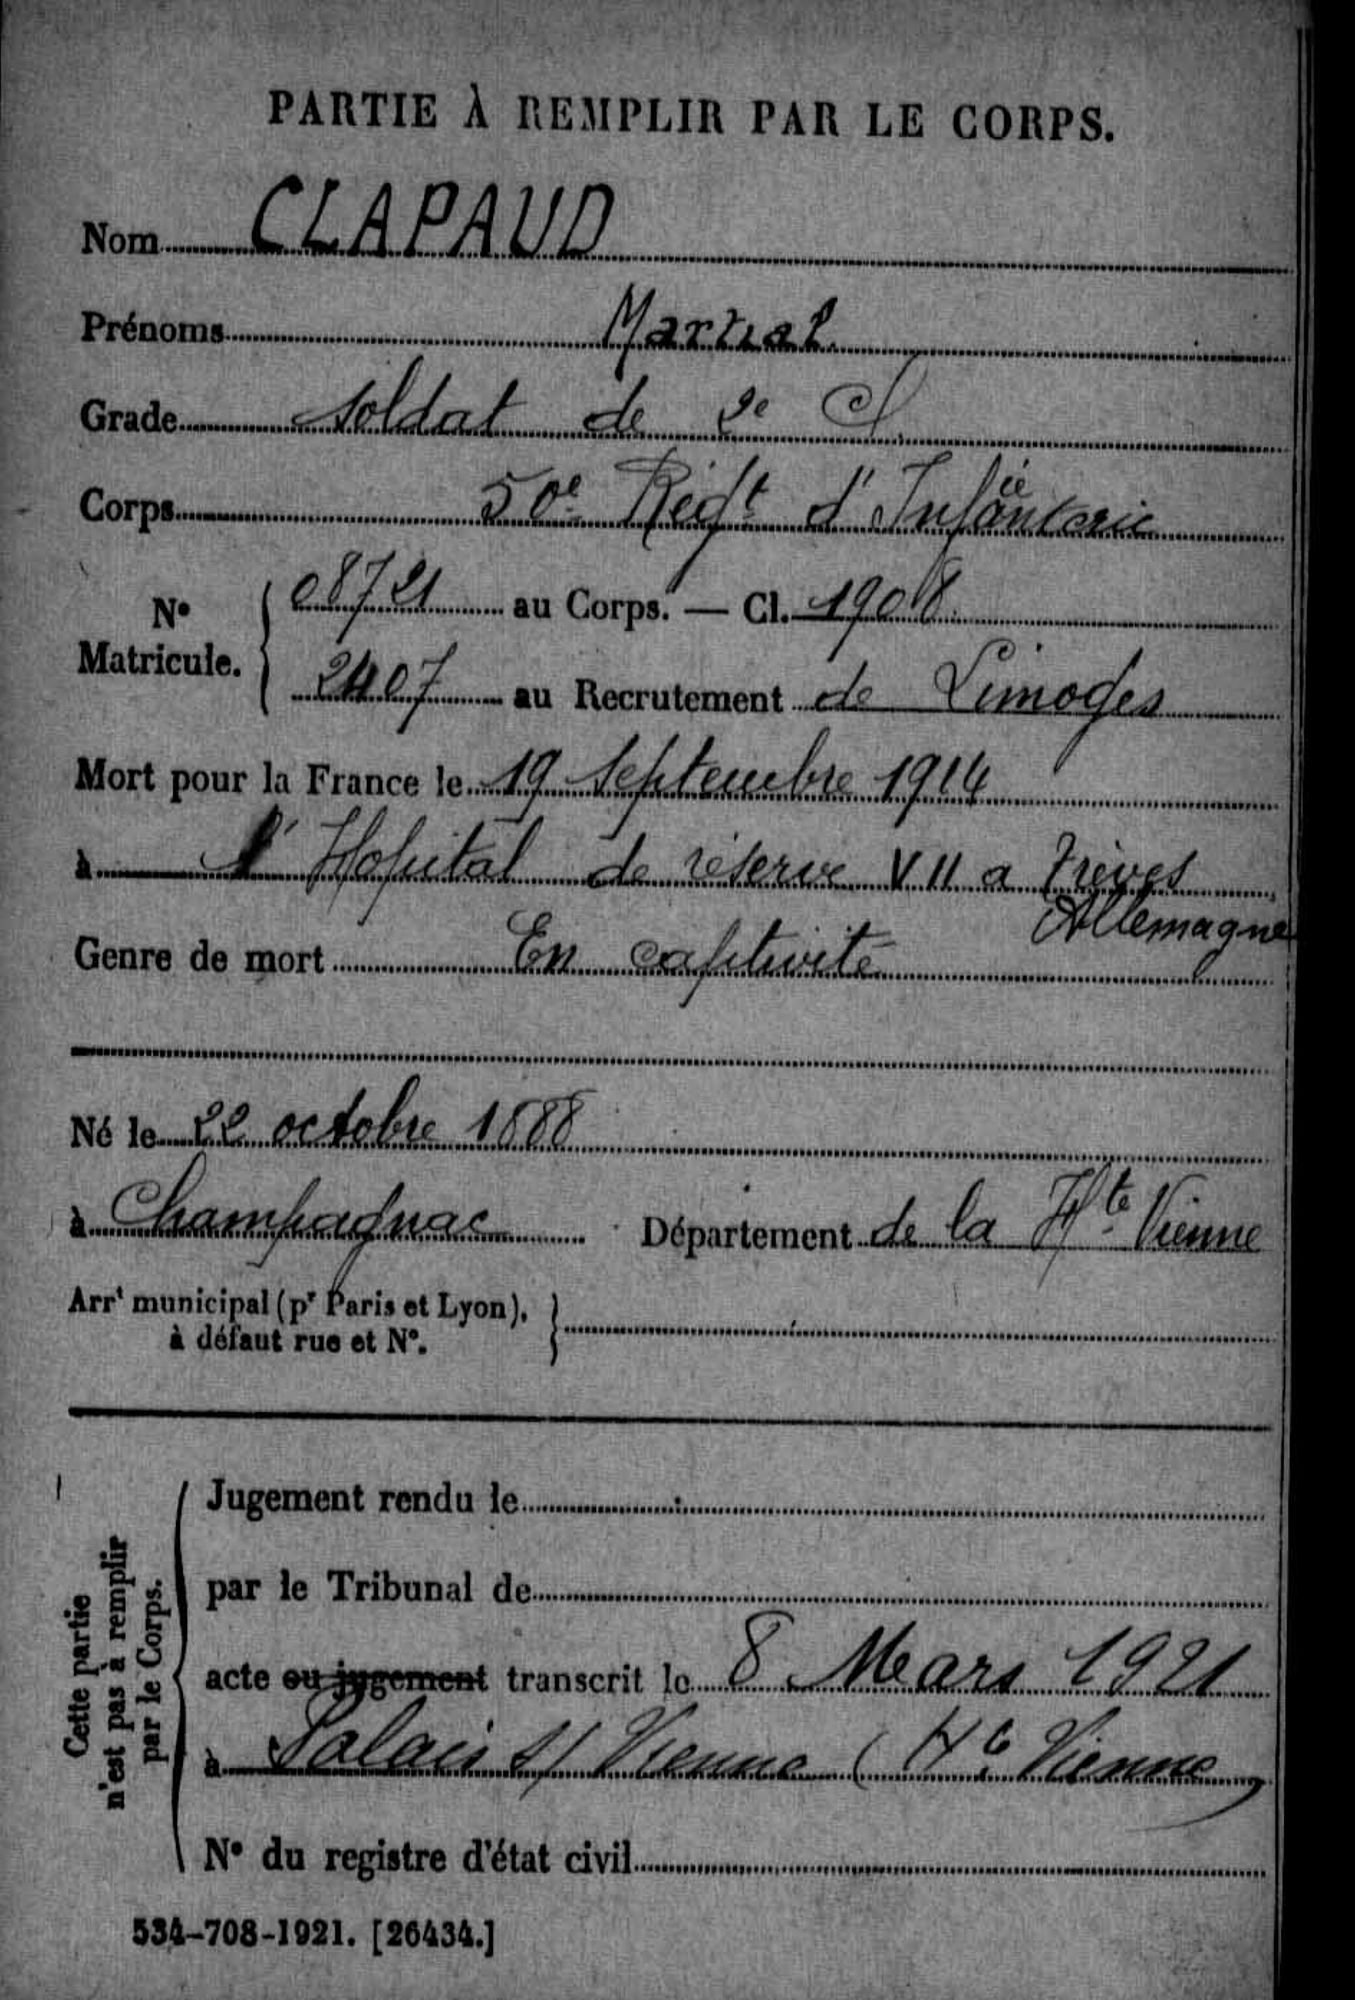 PARTIE À REMPLIR PAR LE CORPS.
Nom CLAPAUD
Prénoms Martial
Grade Soldat de 2e Cl.
Corps 50e Régt d'Infanterie
Nº Matricule. { 08721 au Corps. — Cl. 1908
2407 au Recrutement de Limoges
Mort pour la France le 19 Septembre 1914
à l'Hopital de réserve VII a Trèves
Allemagne
Genre de mort En captivité
Né le 22 octobre 1888
à Champagnac Département de la Hte Vienne
Arrt municipal (pr Paris et Lyon), }
à défaut rue et Nº.
Cette partie
n'est pas à remplir
par le Corps.
Jugement rendu le
par le Tribunal de
acte ou jugement transcrit le 8 Mars 1921
à Palais s/ Vienne (Hte Vienne)
Nº du registre d'état civil
534-708-1921. [26434.]